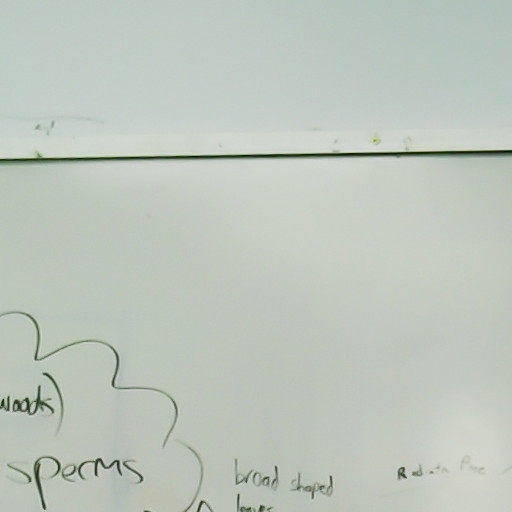 woods)
sperms
broad shaped
leaves
Radiata Pine